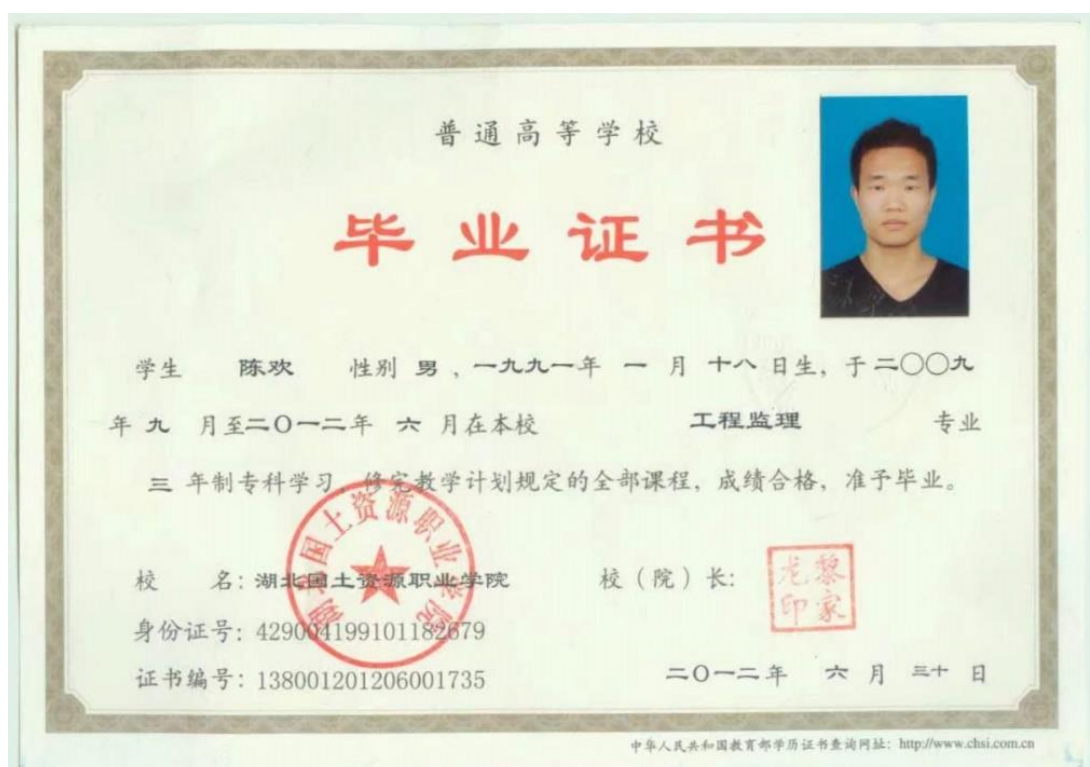 普通高等学校
毕业证书
学生 陈欢 性别 男，一九九一年 一 月 十八 日生，于二〇〇九
年 九 月至二〇一二年 六 月在本校 工程监理 专业
三 年制专科学习，修完教学计划规定的全部课程，成绩合格，准予毕业。
湖北国土资源职业学院
校 名：湖北国土资源职业学院 校（院）长：
黎家龙印
身份证号：429004199101182679
证书编号：138001201206001735
二〇一二年 六 月 三十 日
中华人民共和国教育部学历证书查询网址：http://www.chsi.com.cn